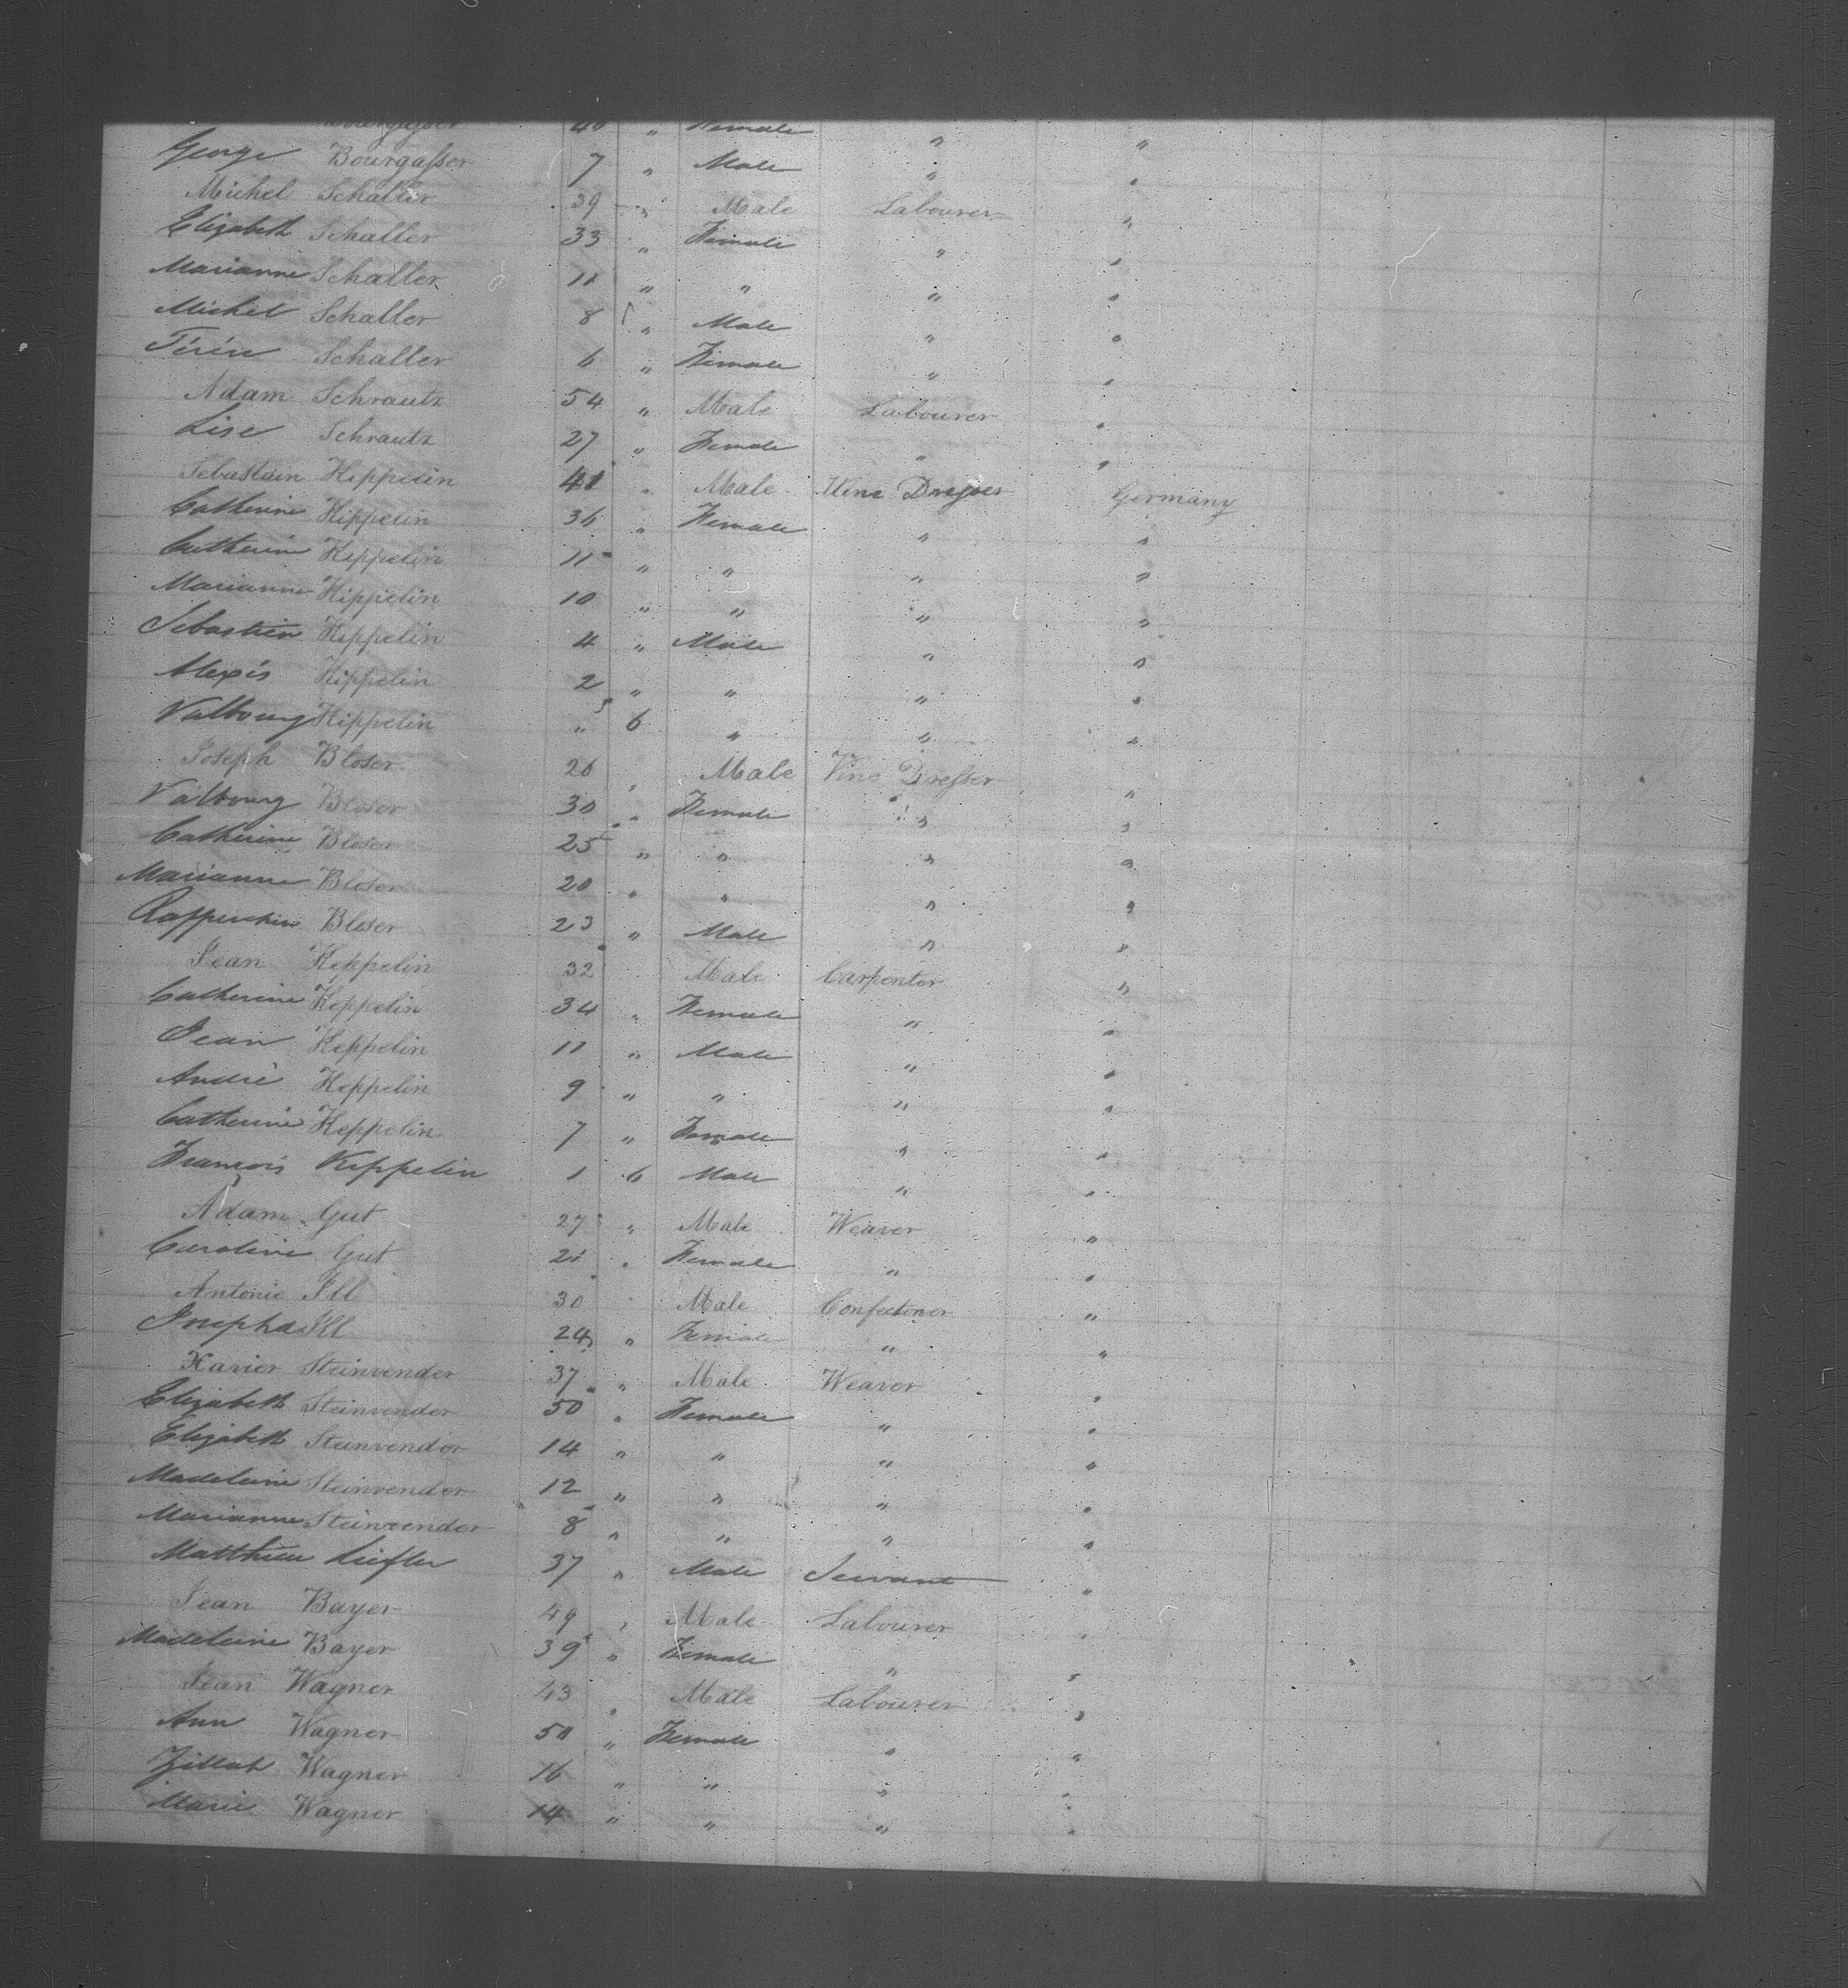 40 " Female " "
George Bourgasser 7 " Male " "
Michel Schaller 39 " Male Labourer "
Elizabeth Schaller 33 " Female " "
Marianne Schaller 11 " " " "
Michel Schaller 8 " Male " "
Schaller 6 " Female " "
Adam Schrautz 54 " Male Labourer "
Lise Schrautz 27 " Female " "
Sebastain Hippelin 41 " Male Vine Dresser Germany
Catherine Hippelin 36 " Female " "
Catherine Hippelin 11 " " " "
Marianne Hippelin 10 " " " "
Sebastien Hippelin 4 " Male " "
Alexis Hippelin 2 " " " "
Valbourg Hippelin " 6 " " "
Joseph Bloser 26 " Male Vine Dresser "
Valbourg Bloser 30 " Female " "
Catherine Bloser 25 " " " "
Marianne Bloser 20 " " " "
Bloser 23 " Male " "
Jean Keppelin 32 Male Carpenter "
Catherine Keppelin 34 " Female " "
Jean Keppelin 11 " Male " "
Andrè Keppelin 9 " " " "
Catherine Keppelin 7 " Female " "
François Keppelin 1 6 Male " "
Adam Gut 27 " Male Weaver "
Caroline Gut 21 " Female " "
Antonie Ill 30 Male Confectioner "
Josepha Ill 24 " Female " "
Xavier Steinvender 37 " Male Weaver "
Elizabeth Steinvender 50 " Female " "
Elizabeth Steinvender 14 " " " "
Madeleine Steinvender 12 " " " "
Marianne Steinvender 8 " " " "
Matthieu 37 " Male Servant "
Jean Bayer 49 " Male Labourer "
Madeleine Bayer 39 " Female " "
Jean Wagner 43 " Male Labourer "
Ann Wagner 50 " Female " "
Zillah Wagner 16 " " " "
Marie Wagner 14 " " " "